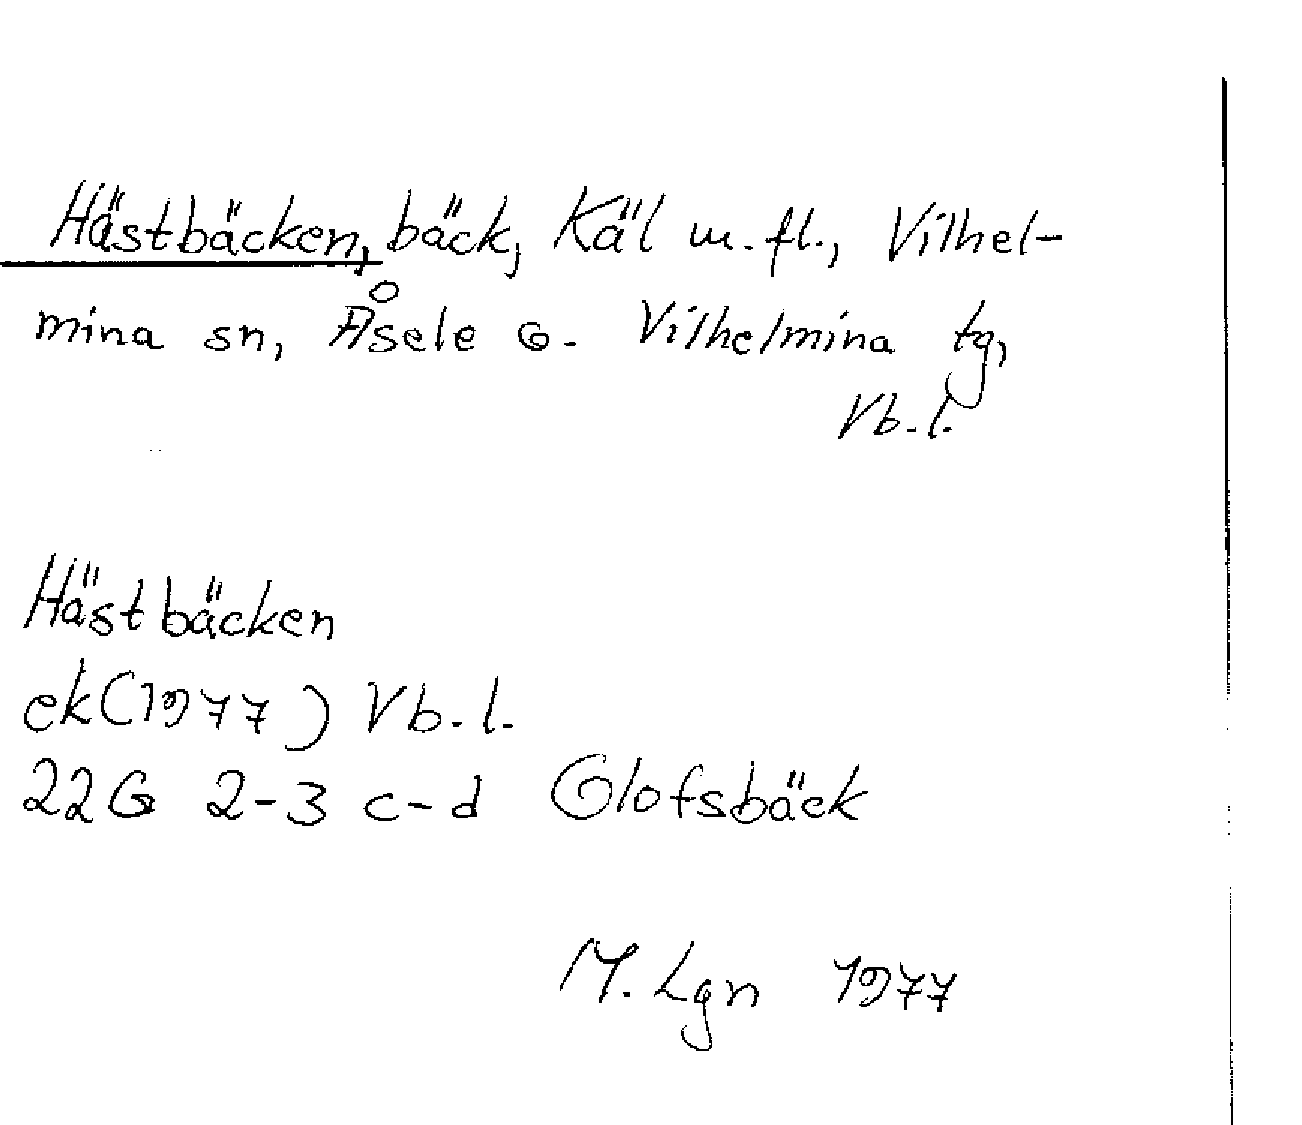 Hästbäcken, bäck, Käl m.fl., Vilhel-
mina sn, Åsele o. Vilhelmina tg,
Vb.l.
Hästbäcken
ek(1977) Vb.l.
22G 2-3 c-d Olofsbäck
M. Lgn 1977